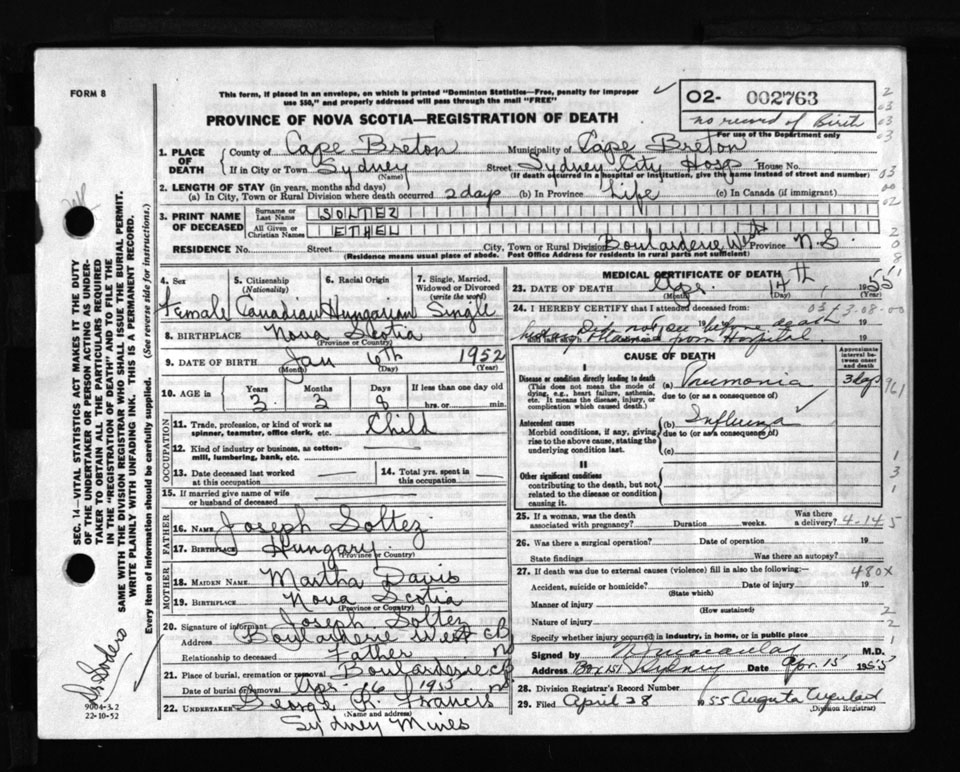 FORM 8
This form, if placed in an envelope, on which is printed "Dominion Statistics—Free, penalty for improper
use $50," and properly addressed will pass through the mail "FREE"
PROVINCE OF NOVA SCOTIA—REGISTRATION OF DEATH
02- 002763
no record of Birth
For use of the Department only
1. PLACE OF DEATH
County of Cape Breton Municipality of Cape Breton
If in City or Town Sydney Street Sydney City Hosp House No.
(Name) (If death occurred in a hospital or institution, give the name instead of street and number)
2. LENGTH OF STAY (in years, months and days)
(a) In City, Town or Rural Division where death occurred 2 days (b) In Province Life (c) In Canada (if immigrant)
3. PRINT NAME OF DECEASED
Surname or Last Name SOLTEZ
All Given or Christian Names ETHEL
RESIDENCE No. Street City, Town or Rural Division Boularderie West Province N.S.
(Residence means usual place of abode. Post Office Address for residents in rural parts not sufficient)
4. Sex
5. Citizenship (Nationality)
6. Racial Origin
7. Single, Married, Widowed or Divorced (write the word)
Female Canadian Hungarian Single
8. BIRTHPLACE Nova Scotia
(Province or Country)
9. DATE OF BIRTH Jan 6th 1952
(Month) (Day) (Year)
10. AGE in Years Months Days If less than one day old
3 3 8 hrs. or min.
OCCUPATION
11. Trade, profession, or kind of work as spinner, teamster, office clerk, etc. Child
12. Kind of industry or business, as cotton-mill, lumbering, bank, etc.
13. Date deceased last worked at this occupation
14. Total yrs. spent in this occupation
15. If married give name of wife or husband of deceased
FATHER
16. NAME Joseph Soltez
17. BIRTHPLACE Hungary
(Province or Country)
MOTHER
18. MAIDEN NAME Martha Davis
19. BIRTHPLACE Nova Scotia
(Province or Country)
20. Signature of informant Joseph Soltez
Address Boularderie West CB
Relationship to deceased Father NS
21. Place of burial, cremation or removal Boularderie CB
Date of burial or removal Apr. 16 1955 NS
22. UNDERTAKER George R. Francis
(Name and address)
Sydney Mines
MEDICAL CERTIFICATE OF DEATH
23. DATE OF DEATH Apr. 14th 1955
(Month) (Day) (Year)
24. I HEREBY CERTIFY that I attended deceased from
Did not see before death
from Hospital 19
CAUSE OF DEATH
Approximate interval between onset and death
I
Disease or condition directly leading to death
(This does not mean the mode of dying, e.g., heart failure, asthenia, etc. It means the disease, injury, or complication which caused death.)
(a) Pneumonia 3 days
due to (or as a consequence of)
Antecedent causes
Morbid conditions, if any, giving rise to the above cause, stating the underlying condition last.
(b) Influenza
due to (or as a consequence of)
(c)
II
Other significant conditions
contributing to the death, but not related to the disease or condition causing it.
25. If a woman, was the death associated with pregnancy? Duration weeks. Was there a delivery? 4-14-5
26. Was there a surgical operation? Date of operation 19
State findings Was there an autopsy?
27. If death was due to external causes (violence) fill in also the following:— 480X
Accident, suicide or homicide? Date of injury 19
(State which)
Manner of injury
(How sustained)
Nature of injury
Specify whether injury occurred in industry, in home, or in public place
Signed by M.D.
Address Box 151 Sydney Date Apr. 15 1955
28. Division Registrar's Record Number
29. Filed April 28 1955 Augusta
(Division Registrar)
SEC. 14—VITAL STATISTICS ACT MAKES IT THE DUTY
OF THE UNDERTAKER OR PERSON ACTING AS UNDER-
TAKER TO OBTAIN ALL THE PARTICULARS REQUIRED
IN THE "REGISTRATION OF DEATH" AND TO FILE THE
SAME WITH THE DIVISION REGISTRAR WHO SHALL ISSUE THE BURIAL PERMIT.
WRITE PLAINLY WITH UNFADING INK. THIS IS A PERMANENT RECORD.
Every item of information should be carefully supplied. (See reverse side for instructions.)
9004-3.2
22-10-52